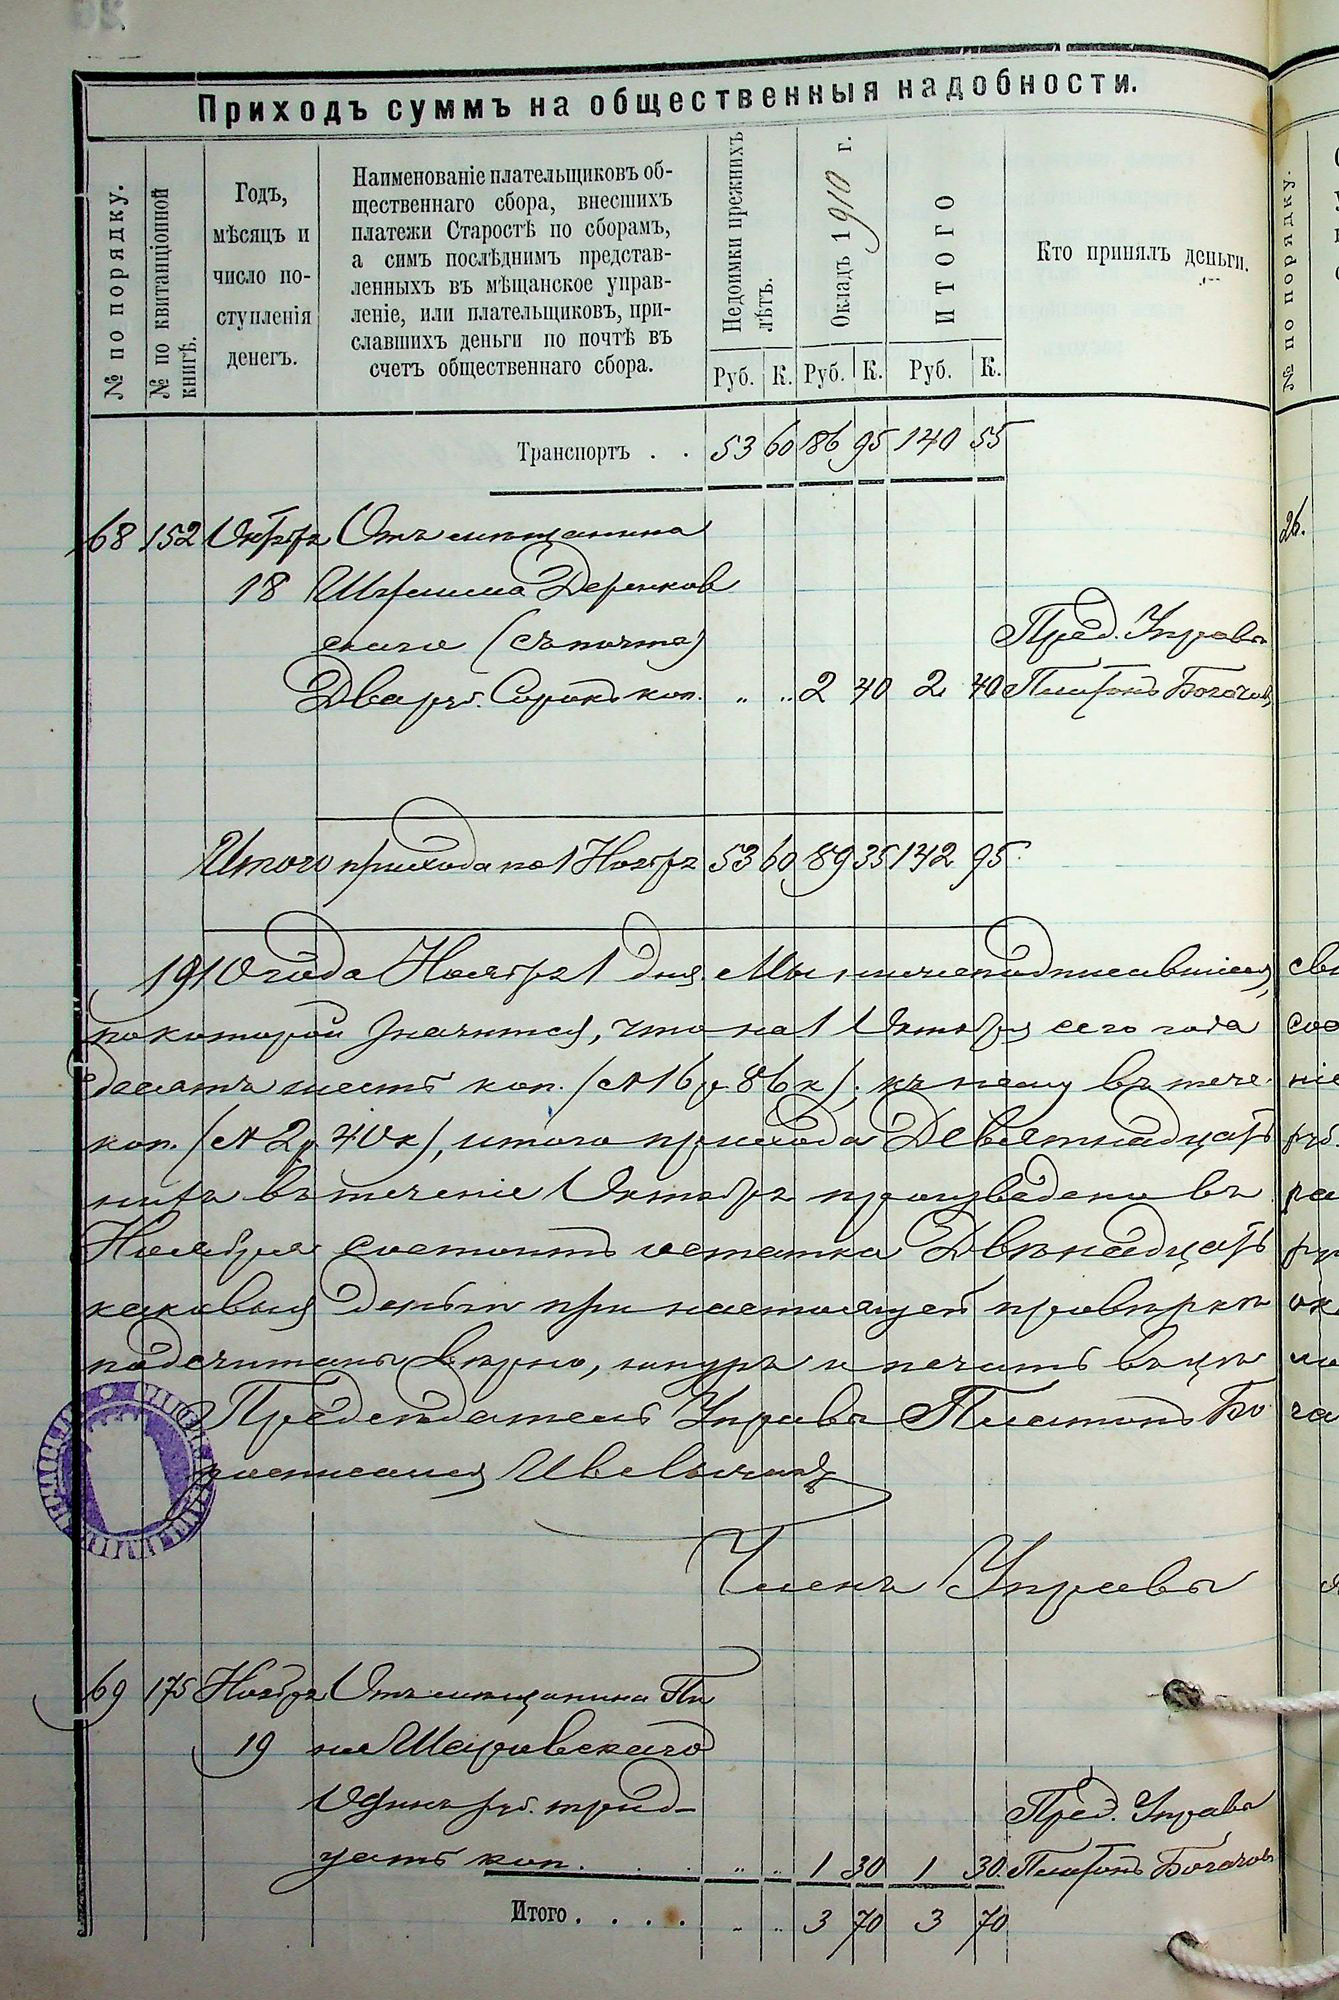 Приходъ суммъ на общественныя надобности.
№ по порядку.
№ по квитанціонной
книгѣ.
Годъ,
мѣсяцъ и
число по-
ступленія
денегъ.
Наименованіе плательщиковъ об-
щественнаго сбора, внесшихъ
платежи Старостѣ по сборамъ,
а симъ послѣднимъ представ-
ленныхъ въ мѣщанское управ-
леніе, или плательщиковъ, при-
славшихъ деньги по почтѣ въ
счетъ общественнаго сбора.
Недоимки прежнихъ
лѣтъ.
Окладъ 1910 г.
ИТОГО
Кто принялъ деньги.
№ по порядку.
Руб. К. Руб. К. Руб. К.
Транспортъ . . 53 60 86 95 140 55
68 152 Октбря Отъ мѣщанина
26.
18 Деренков
скаго (съ почты) Пред. Управы
Два руб. Сорокъ коп. " " 2 40 2 40 Платонъ Богачовъ
Итого прихода по 1 Ноября 53 60 89 35 142 95
1910 года Ноября 1 дня. Мы нижеподписавшіеся,
по которой значится, что на 1 Октября сего года
десять шесть коп. (А 16 р 86 к). къ нему въ тече-
коп. (А 2 р 40 к), итого прихода Девятнадцать
нихъ въ теченіе Октября произведено въ
Ноября состоитъ остатка Двѣнадцать
каковыя деньги при настоящей провѣрке
подсчитаны вѣрно, шнуръ и печать въ цѣ
Предсѣдатель Управы Платонъ Бо
Членъ Управы
69 175 Ноября Отъ мѣщанина Пи
19 на Шаровскаго
Одинъ руб. трид- Пред. Управы
цать коп. . . . " " 1 30 1 30. Платонъ Богачовъ
Итого . . . . " " 3 70 3 70